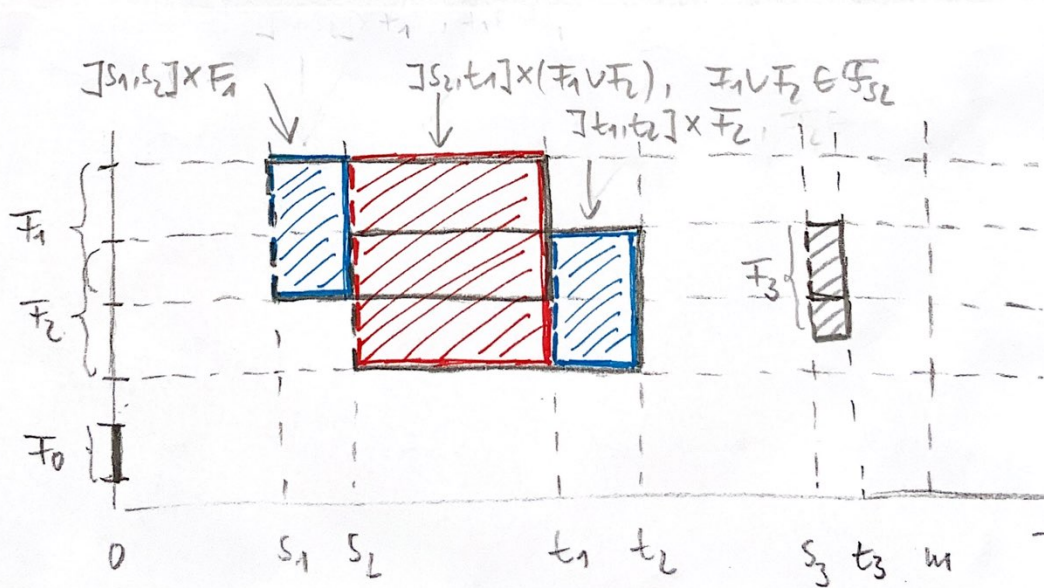 ]s₁,s₂]×F₁
]s₂,t₁]×(F₁∪F₂), F₁∪F₂ ∈ 𝓕s₂
]t₁,t₂]×F₂
F₁
F₂
F₃
F₀
0 s₁ s₂ t₁ t₂ s₃ t₃ m